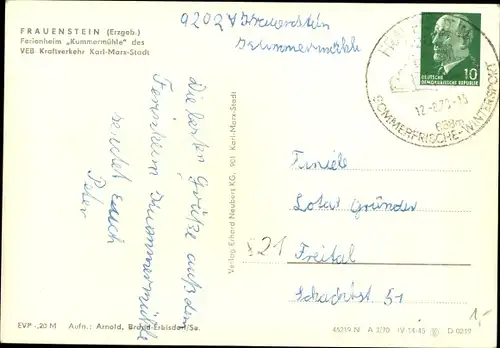 FRAUENSTEIN (Erzgeb.)
Ferienheim „Kummermühle" des
VEB Kraftverkehr Karl-Marx-Stadt
9202 Frauenstein
Kummermühle
Die besten Grüße aus dem
Ferienheim Kummermühle
sendet Euch
Peter
Verlag Erhard Neubert KG, 901 Karl-Marx-Stadt
DEUTSCHE
DEMOKRATISCHE REPUBLIK
10
SOMMERFRISCHE-WINTERSPORT
Familie
Lotar Gründer
821
Freital
Schachtst 51
1,-
EVP -,20 M Aufn.: Arnold, Brand-Erbisdorf/Sa.
45219 N A 3/70 IV-14-45 D 0219